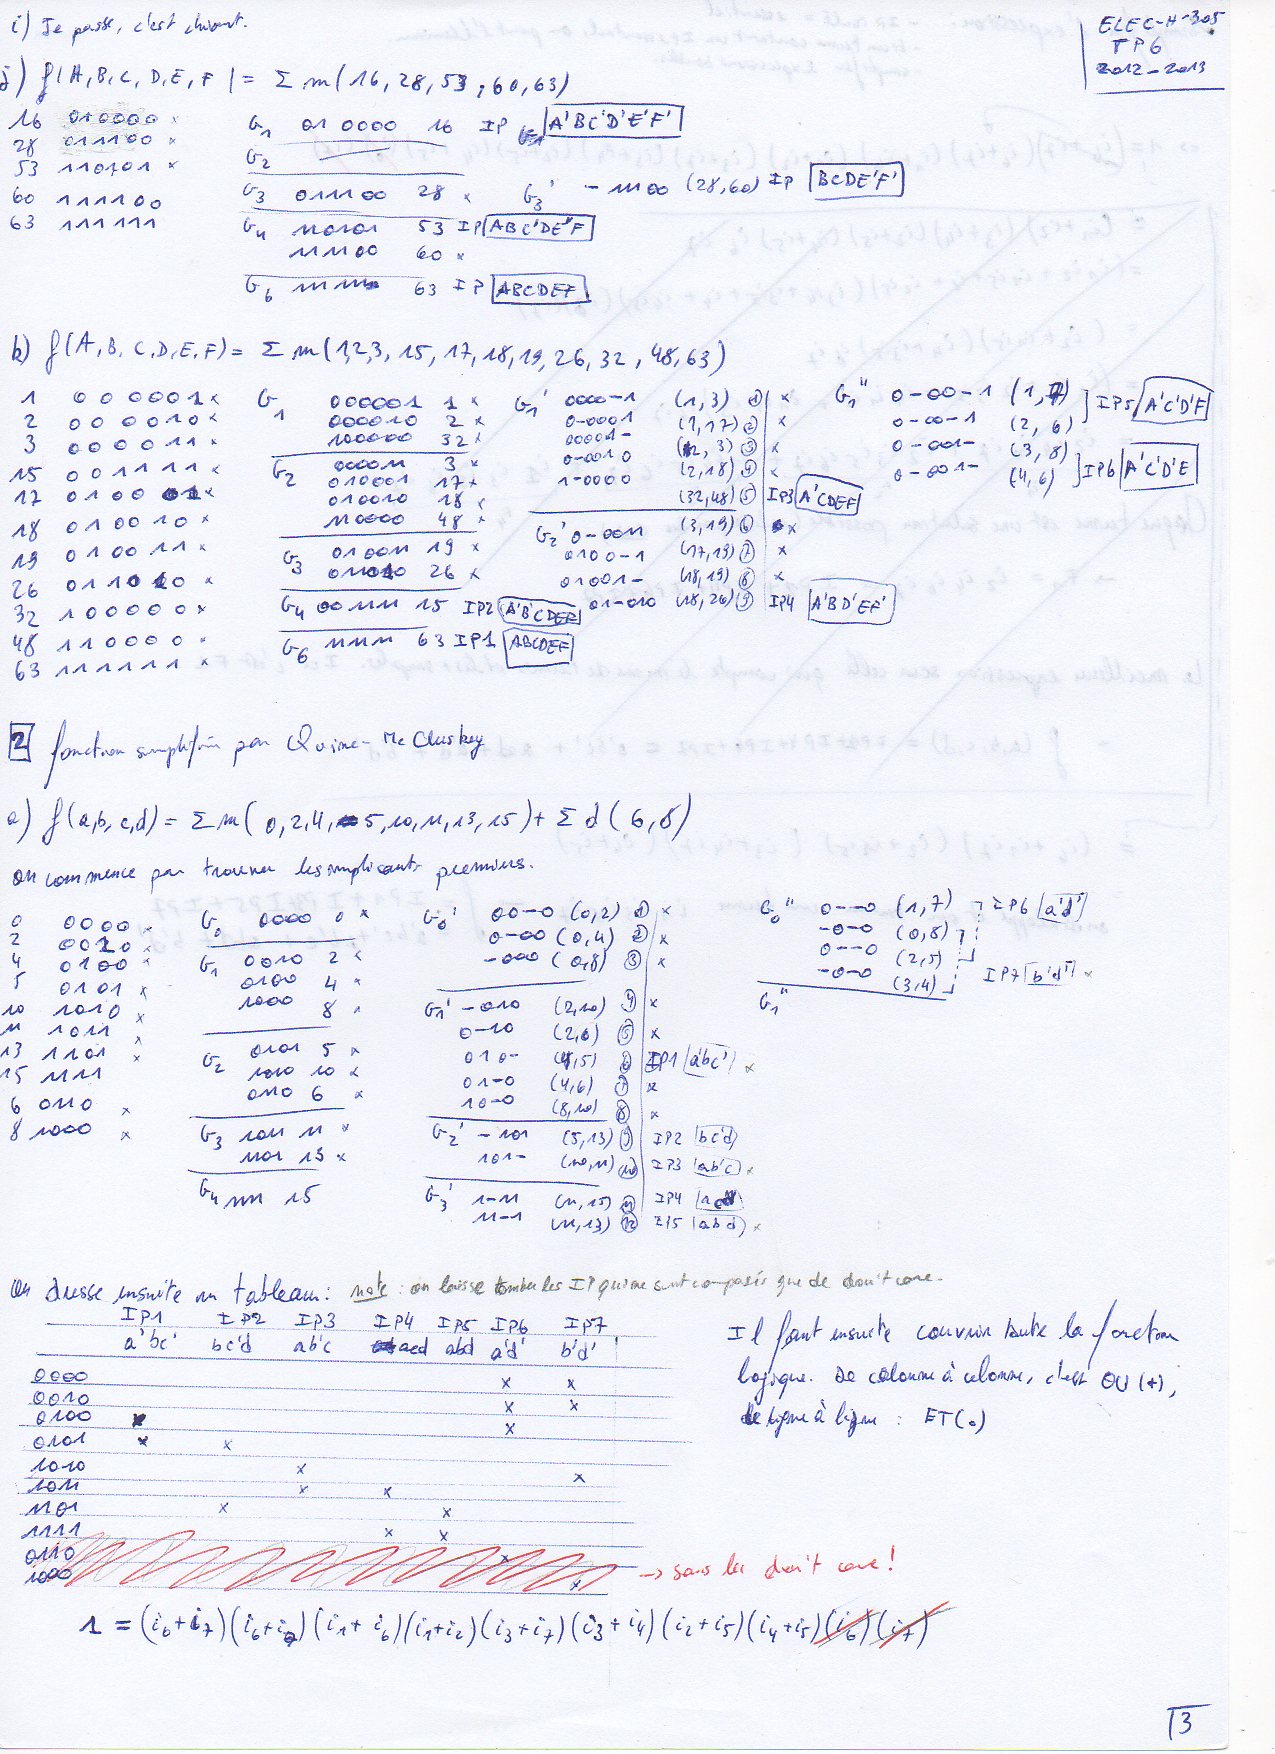 i) Je passe, c'est chiant.
ELEC-H-305
TP6
2012-2013
j) f(A,B,C,D,E,F) = Σ m(16,28,53,60,63)
16 010000 x
28 011100 x
53 110101 x
60 111100
63 111111
G1 010000 16 IP A'BC'D'E'F'
G2
G3 011100 28 x
G3' -11100 (28,60) IP BCDE'F'
G4 110101 53 IP ABC'DE'F
111100 60 x
G6 111111 63 IP ABCDEF
k) f(A,B,C,D,E,F) = Σ m(1,2,3,15,17,18,19,26,32,48,63)
1 000001 x
2 000010 x
3 000011 x
15 001111 x
17 010001 x
18 010010 x
19 010011 x
26 011010 x
32 100000 x
48 110000 x
63 111111 x
G1 000001 1 x
000010 2 x
100000 32 x
G2 000011 3 x
010001 17 x
010010 18 x
110000 48 x
G3 010011 19 x
011010 26 x
G4 001111 15 IP2 A'B'CDEF
G6 111111 63 IP1 ABCDEF
G1' 0000-1 (1,3) ① x
0-0001 (1,17) ② x
00001- (2,3) ③ x
0-0010 (2,18) ④ x
1-0000 (32,48) ⑤ IP3
G2' 0-0011 (3,19) ⑥ x
0100-1 (17,19) ⑦ x
01001- (18,19) ⑧ x
01-010 (18,26) ⑨ IP4 A'BD'EF'
G1'' 0-00-1 (1,7)
0-00-1 (2,6) IP5 A'C'D'F
0-001- (3,8)
0-001- (4,6) IP6 A'C'D'E
2 fonction simplifiée par Quine-McCluskey
a) f(a,b,c,d) = Σ m(0,2,4,5,10,11,13,15) + Σ d(6,8)
On commence par trouver les implicants premiers.
0 0000 x
2 0010 x
4 0100 x
5 0101 x
10 1010 x
11 1011 x
13 1101 x
15 1111
6 0110 x
8 1000 x
G0 0000 0 x
G1 0010 2 x
0100 4 x
1000 8 x
G2 0101 5 x
1010 10 x
0110 6 x
G3 1011 11 x
1101 13 x
G4 1111 15
G0' 00-0 (0,2) ① x
0-00 (0,4) ② x
-000 (0,8) ③ x
G1' -010 (2,10) ④ x
0-10 (2,6) ⑤ x
010- (4,5) ⑥ IP1 a'bc' x
01-0 (4,6) ⑦ x
10-0 (8,10) ⑧ x
G2' -101 (5,13) ⑨ IP2 bc'd
101- (10,11) ⑩ IP3 ab'c x
G3' 1-11 (11,15) ⑪ IP4 acd
11-1 (11,13) ⑫ IP5 abd x
G0'' 0--0 (1,7) IP6 a'd'
-0-0 (0,8)
0--0 (2,5)
-0-0 (3,4) IP7 b'd' x
G1''
On dresse ensuite un tableau : note : on laisse tomber les IP qui ne sont composés que de don't care.
IP1 IP2 IP3 IP4 IP5 IP6 IP7
a'bc' bc'd ab'c acd abd a'd' b'd'
0000 x x
0010 x x
0100 x x
0101 x x
1010 x x
1011 x x
1101 x x
1111 x x
0110 x
1000 x
→ sans les don't care !
Il faut ensuite couvrir toute la fonction
logique. De colonne à colonne, c'est OU (+),
de ligne à ligne : ET(.)
1 = (i6+i7)(i6+i7)(i1+i6)(i1+i2)(i3+i7)(i3+i4)(i2+i5)(i4+i5)(i6)(i7)
13